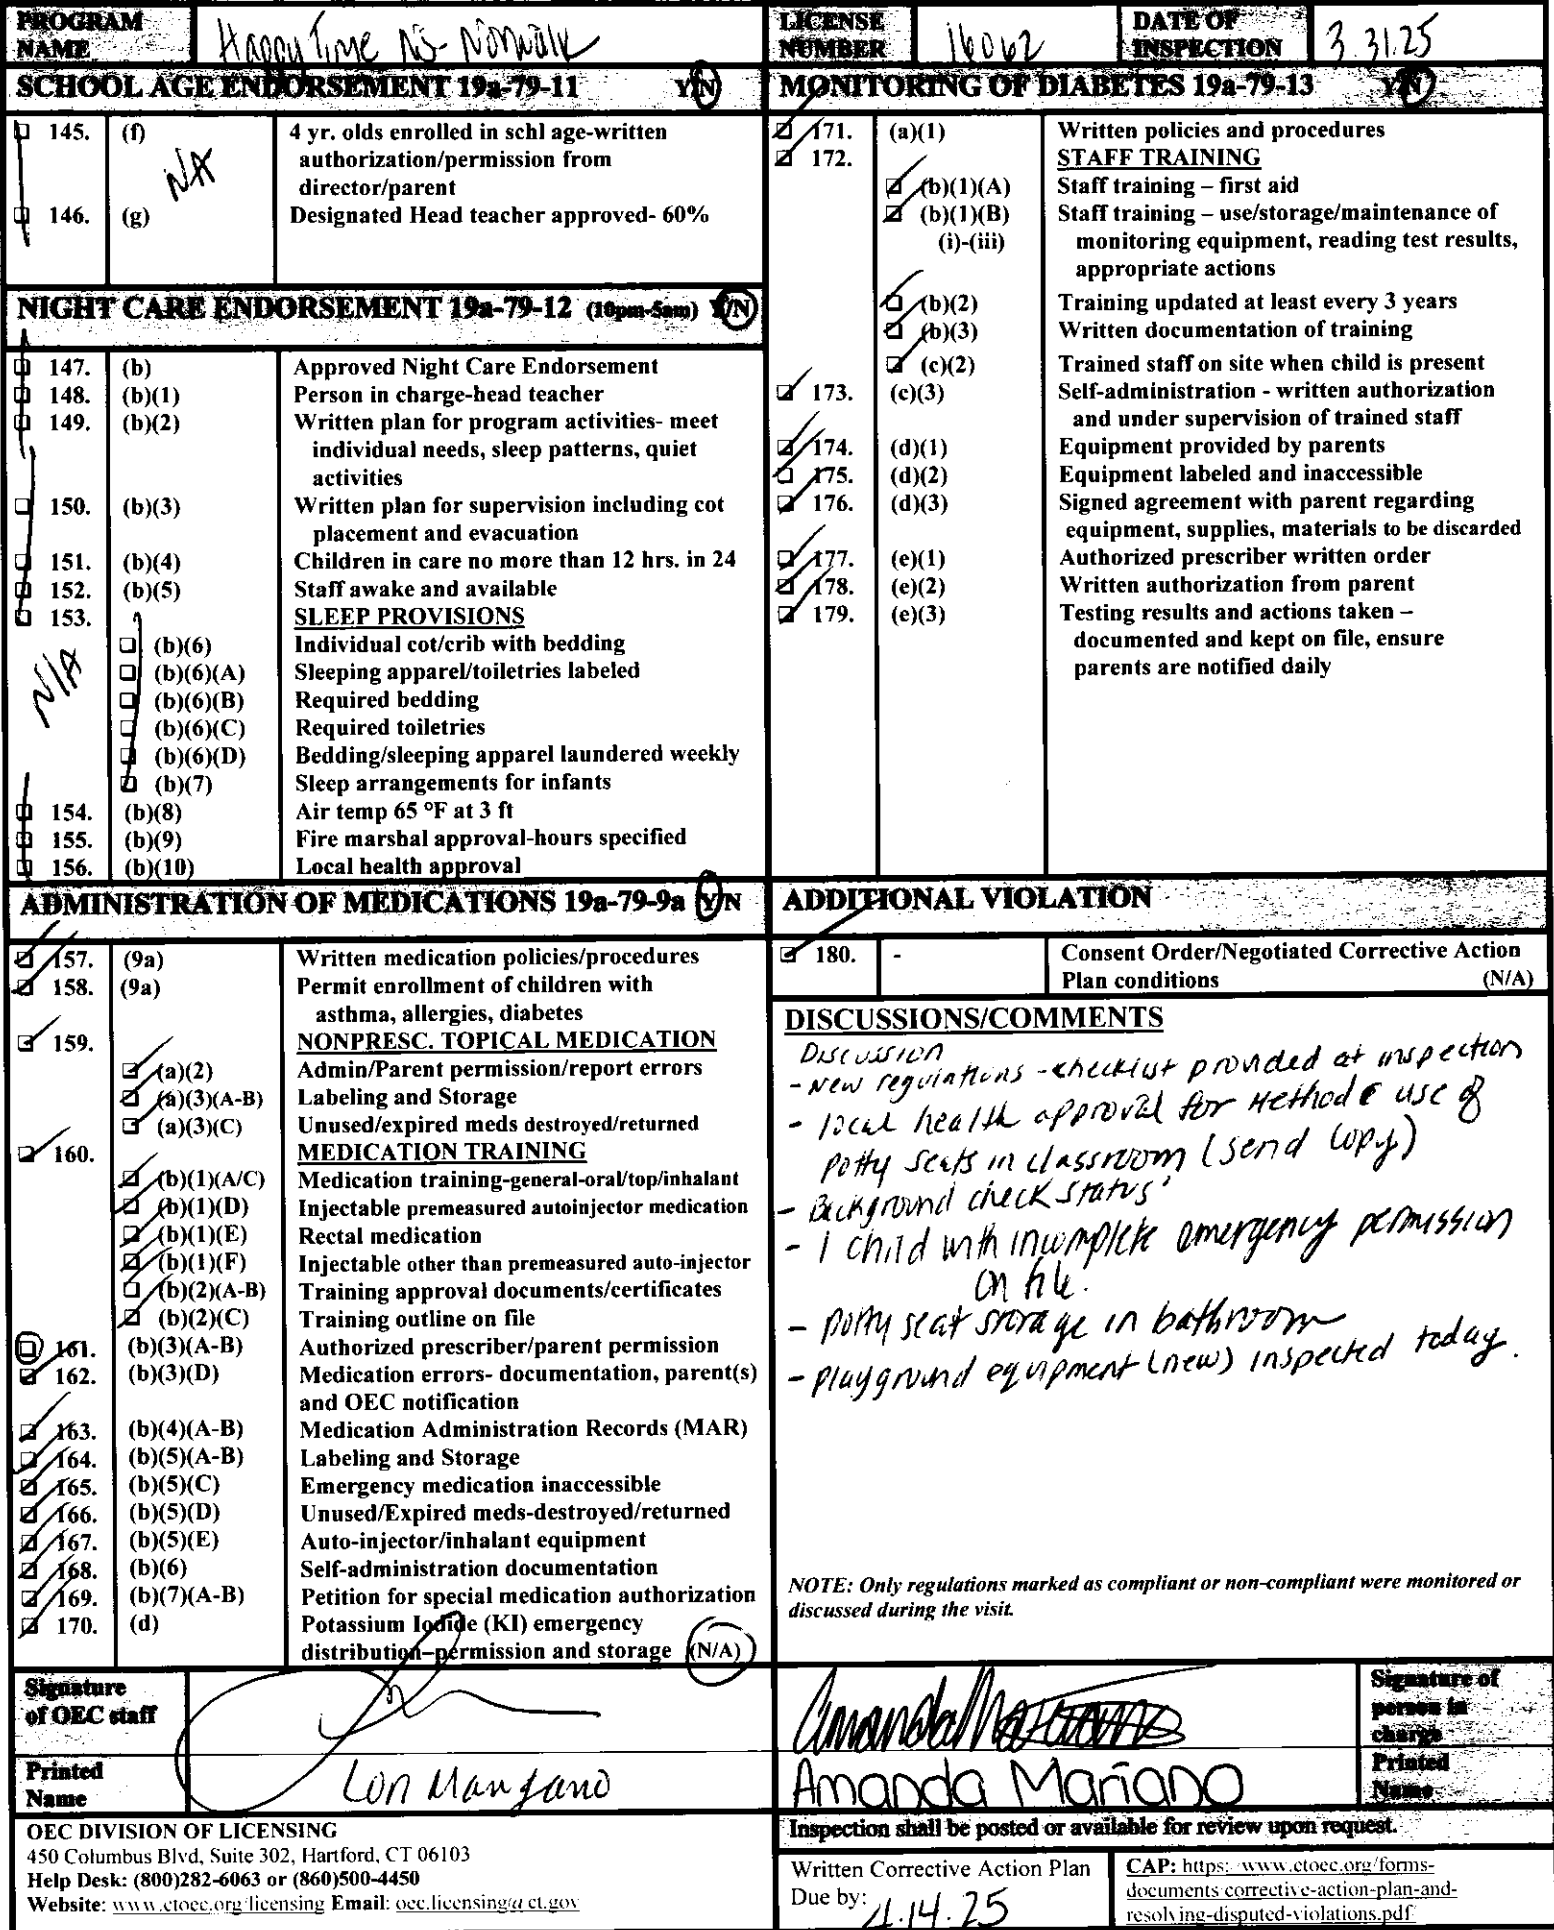 PROGRAM NAME Happy Time N.S. Norwalk LICENSE NUMBER 16062 DATE OF INSPECTION 3.31.25
SCHOOL AGE ENDORSEMENT 19a-79-11 Y/N
145. (f) 4 yr. olds enrolled in schl age-written
authorization/permission from
director/parent
NA
146. (g) Designated Head teacher approved- 60%
NIGHT CARE ENDORSEMENT 19a-79-12 (10pm-5am) Y/N
147. (b) Approved Night Care Endorsement
148. (b)(1) Person in charge-head teacher
149. (b)(2) Written plan for program activities- meet
individual needs, sleep patterns, quiet
activities
150. (b)(3) Written plan for supervision including cot
placement and evacuation
151. (b)(4) Children in care no more than 12 hrs. in 24
152. (b)(5) Staff awake and available
153. SLEEP PROVISIONS
N/A
(b)(6) Individual cot/crib with bedding
(b)(6)(A) Sleeping apparel/toiletries labeled
(b)(6)(B) Required bedding
(b)(6)(C) Required toiletries
(b)(6)(D) Bedding/sleeping apparel laundered weekly
(b)(7) Sleep arrangements for infants
154. (b)(8) Air temp 65 °F at 3 ft
155. (b)(9) Fire marshal approval-hours specified
156. (b)(10) Local health approval
ADMINISTRATION OF MEDICATIONS 19a-79-9a Y/N
157. (9a) Written medication policies/procedures
158. (9a) Permit enrollment of children with
asthma, allergies, diabetes
159. NONPRESC. TOPICAL MEDICATION
(a)(2) Admin/Parent permission/report errors
(a)(3)(A-B) Labeling and Storage
(a)(3)(C) Unused/expired meds destroyed/returned
160. MEDICATION TRAINING
(b)(1)(A/C) Medication training-general-oral/top/inhalant
(b)(1)(D) Injectable premeasured autoinjector medication
(b)(1)(E) Rectal medication
(b)(1)(F) Injectable other than premeasured auto-injector
(b)(2)(A-B) Training approval documents/certificates
(b)(2)(C) Training outline on file
161. (b)(3)(A-B) Authorized prescriber/parent permission
162. (b)(3)(D) Medication errors- documentation, parent(s)
and OEC notification
163. (b)(4)(A-B) Medication Administration Records (MAR)
164. (b)(5)(A-B) Labeling and Storage
165. (b)(5)(C) Emergency medication inaccessible
166. (b)(5)(D) Unused/Expired meds-destroyed/returned
167. (b)(5)(E) Auto-injector/inhalant equipment
168. (b)(6) Self-administration documentation
169. (b)(7)(A-B) Petition for special medication authorization
170. (d) Potassium Iodide (KI) emergency
distribution–permission and storage (N/A)
MONITORING OF DIABETES 19a-79-13 Y/N
171. (a)(1) Written policies and procedures
172. STAFF TRAINING
(b)(1)(A) Staff training – first aid
(b)(1)(B) Staff training – use/storage/maintenance of
(i)-(iii) monitoring equipment, reading test results,
appropriate actions
(b)(2) Training updated at least every 3 years
(b)(3) Written documentation of training
(c)(2) Trained staff on site when child is present
173. (c)(3) Self-administration - written authorization
and under supervision of trained staff
174. (d)(1) Equipment provided by parents
175. (d)(2) Equipment labeled and inaccessible
176. (d)(3) Signed agreement with parent regarding
equipment, supplies, materials to be discarded
177. (e)(1) Authorized prescriber written order
178. (e)(2) Written authorization from parent
179. (e)(3) Testing results and actions taken –
documented and kept on file, ensure
parents are notified daily
ADDITIONAL VIOLATION
180. - Consent Order/Negotiated Corrective Action
Plan conditions (N/A)
DISCUSSIONS/COMMENTS
Discussion
- New regulations - checklist provided at inspection
- local health approval for method & use of
potty seats in classroom (send copy)
- Background check status
- 1 child with incomplete emergency permission
on file.
- potty seat storage in bathroom
- playground equipment (new) inspected today.
NOTE: Only regulations marked as compliant or non-compliant were monitored or
discussed during the visit.
Signature of OEC staff
Printed Name Lori Mangano
Amanda Mariano Signature of person in charge
Amanda Mariano Printed Name
OEC DIVISION OF LICENSING
450 Columbus Blvd, Suite 302, Hartford, CT 06103
Help Desk: (800)282-6063 or (860)500-4450
Website: www.ctoec.org/licensing Email: oec.licensing@ct.gov
Inspection shall be posted or available for review upon request.
Written Corrective Action Plan
Due by: 4.14.25
CAP: https://www.ctoec.org/forms-
documents/corrective-action-plan-and-
resolving-disputed-violations.pdf